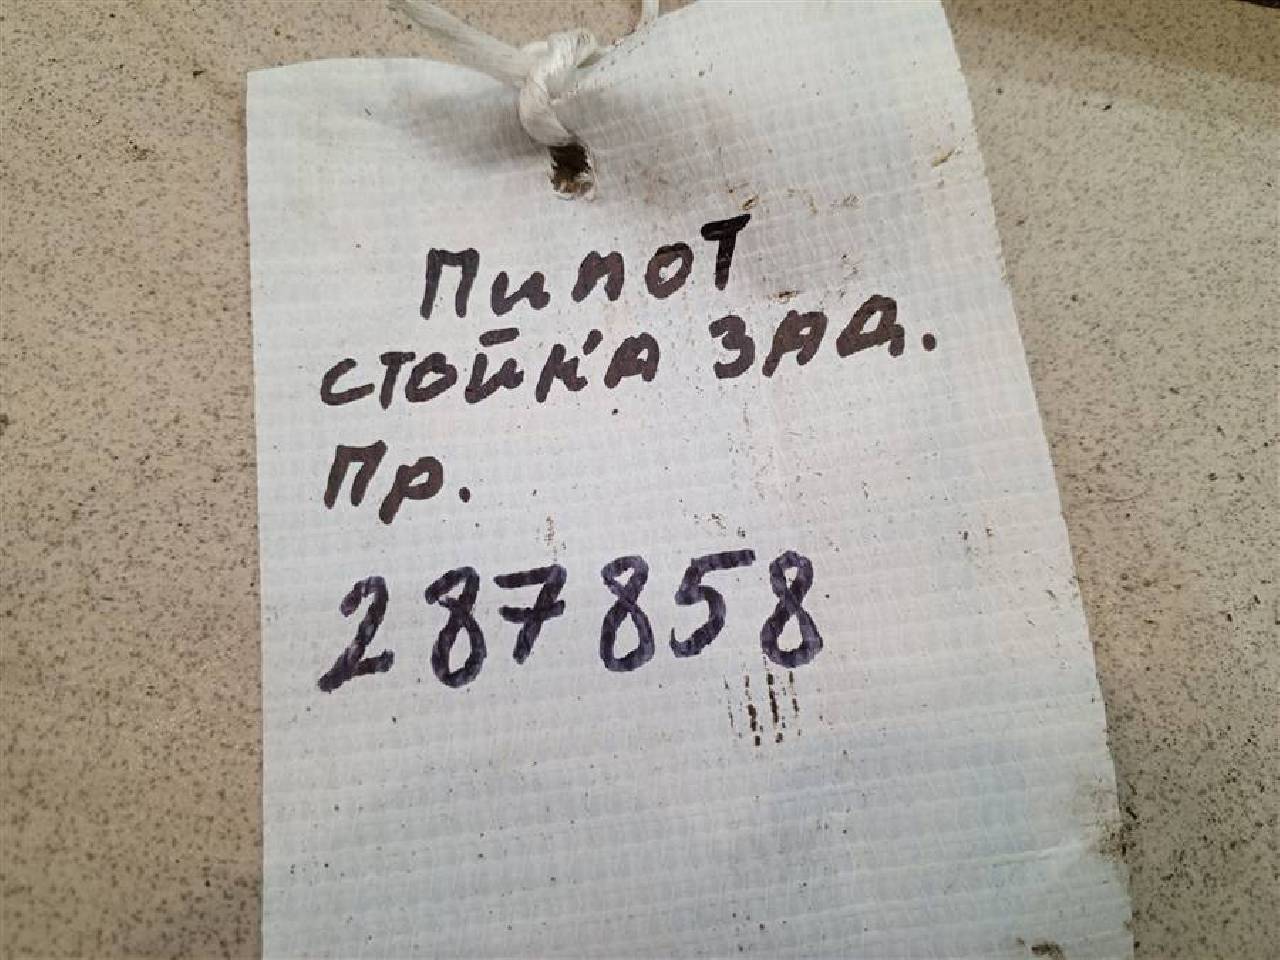 Пипот
стойка зад.
Пр.
287858